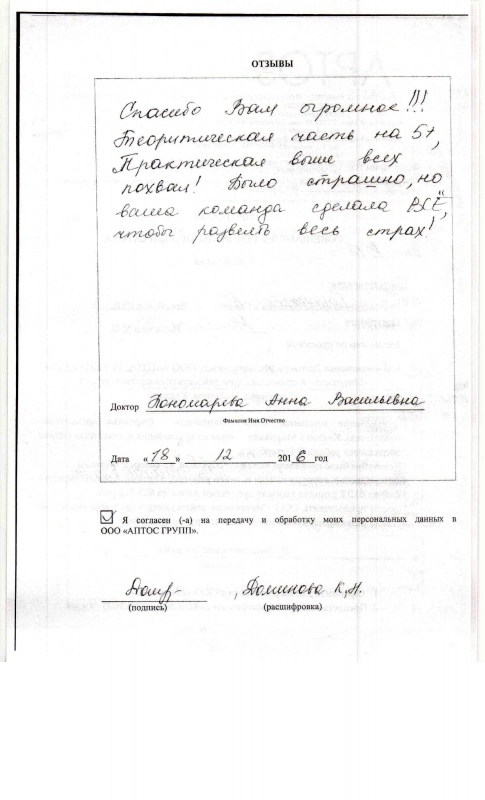 ОТЗЫВЫ
Спасибо Вам огромное!!!
Теоритическая часть на 5+,
Практическая выше всех
похвал! Было страшно, но
ваша команда сделала ВСЁ,
чтобы развеять весь страх!
Доктор Пономарева Анна Васильевна
Фамилия Имя Отчество
Дата «18» 12 2016 год
Я согласен (-а) на передачу и обработку моих персональных данных в
ООО «АПТОС ГРУПП».
Доминова К.Н.
(подпись) (расшифровка)